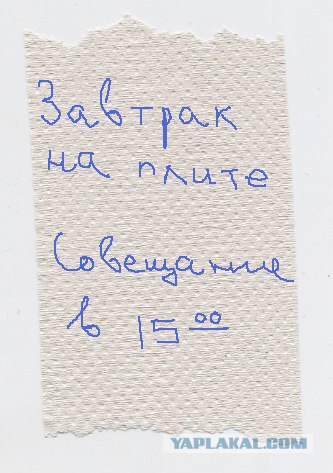 Завтрак
на плите
Совещание
в 15 00
YAPLAKAL.COM